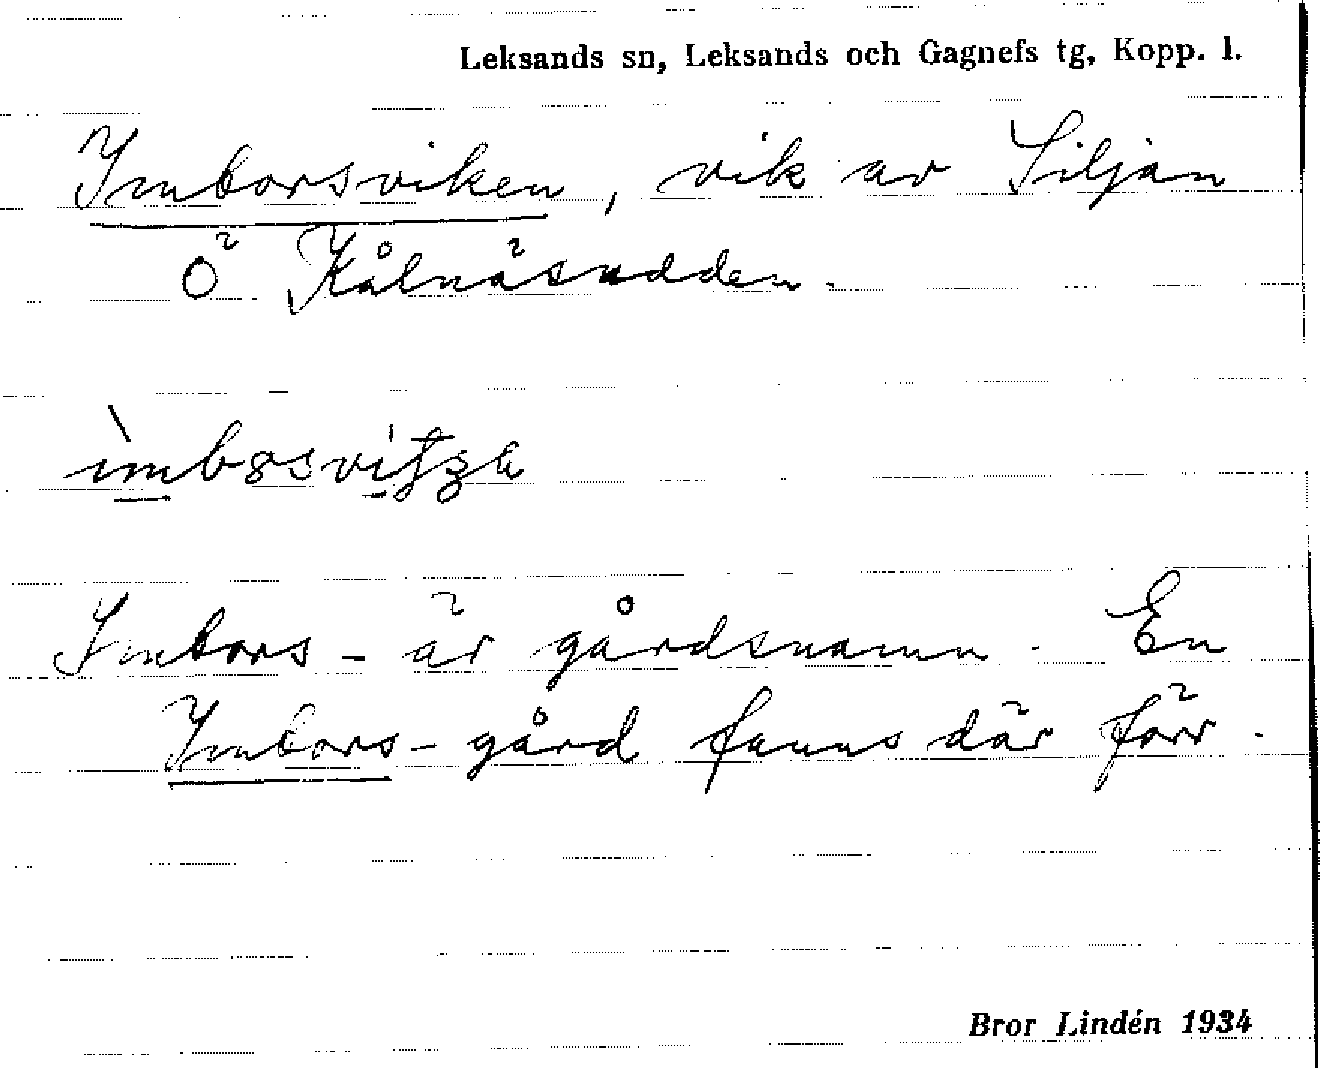 Leksands sn, Leksands och Gagnefs tg, Kopp. l.
Imborsviken, vik av Siljan
Ö Kålnäsudden.
Imbors- är gårdsnamn. En
Imbors-gård fanns där förr.
Bror Lindén 1934